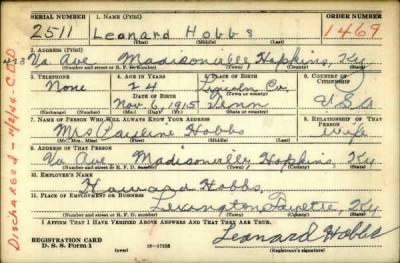 SERIAL NUMBER 1. NAME (Print) ORDER NUMBER
2511 Leonard Hobbs 1469
(First) (Middle) (Last)
2. ADDRESS (Print)
413 Va Ave Madisonville, Hopkins, Ky
(Number and street or R. F. D. number) (Town) (County) (State)
3. TELEPHONE 4. AGE IN YEARS 5. PLACE OF BIRTH 6. COUNTRY OF CITIZENSHIP
None 24 Lincoln Co
DATE OF BIRTH
Nov 6, 1915 Tenn U.S.A
(Exchange) (Number) (Mo.) (Day) (Yr.) (State or country)
7. NAME OF PERSON WHO WILL ALWAYS KNOW YOUR ADDRESS 8. RELATIONSHIP OF THAT PERSON
Mrs Pauline Hobbs Wife
(Mr., Mrs., Miss) (First) (Middle) (Last)
9. ADDRESS OF THAT PERSON
Va Ave Madisonville, Hopkins, Ky
(Number and street or R. F. D. number) (Town) (County) (State)
10. EMPLOYER'S NAME
Howard Hobbs,
11. PLACE OF EMPLOYMENT OR BUSINESS
Lexington Fayette, Ky
(Number and street or R. F. D. number) (Town) (County) (State)
I AFFIRM THAT I HAVE VERIFIED ABOVE ANSWERS AND THAT THEY ARE TRUE.
REGISTRATION CARD
D. S. S. Form 1 16-17105 Leonard Hobbs
(Registrant's signature)
Discharged